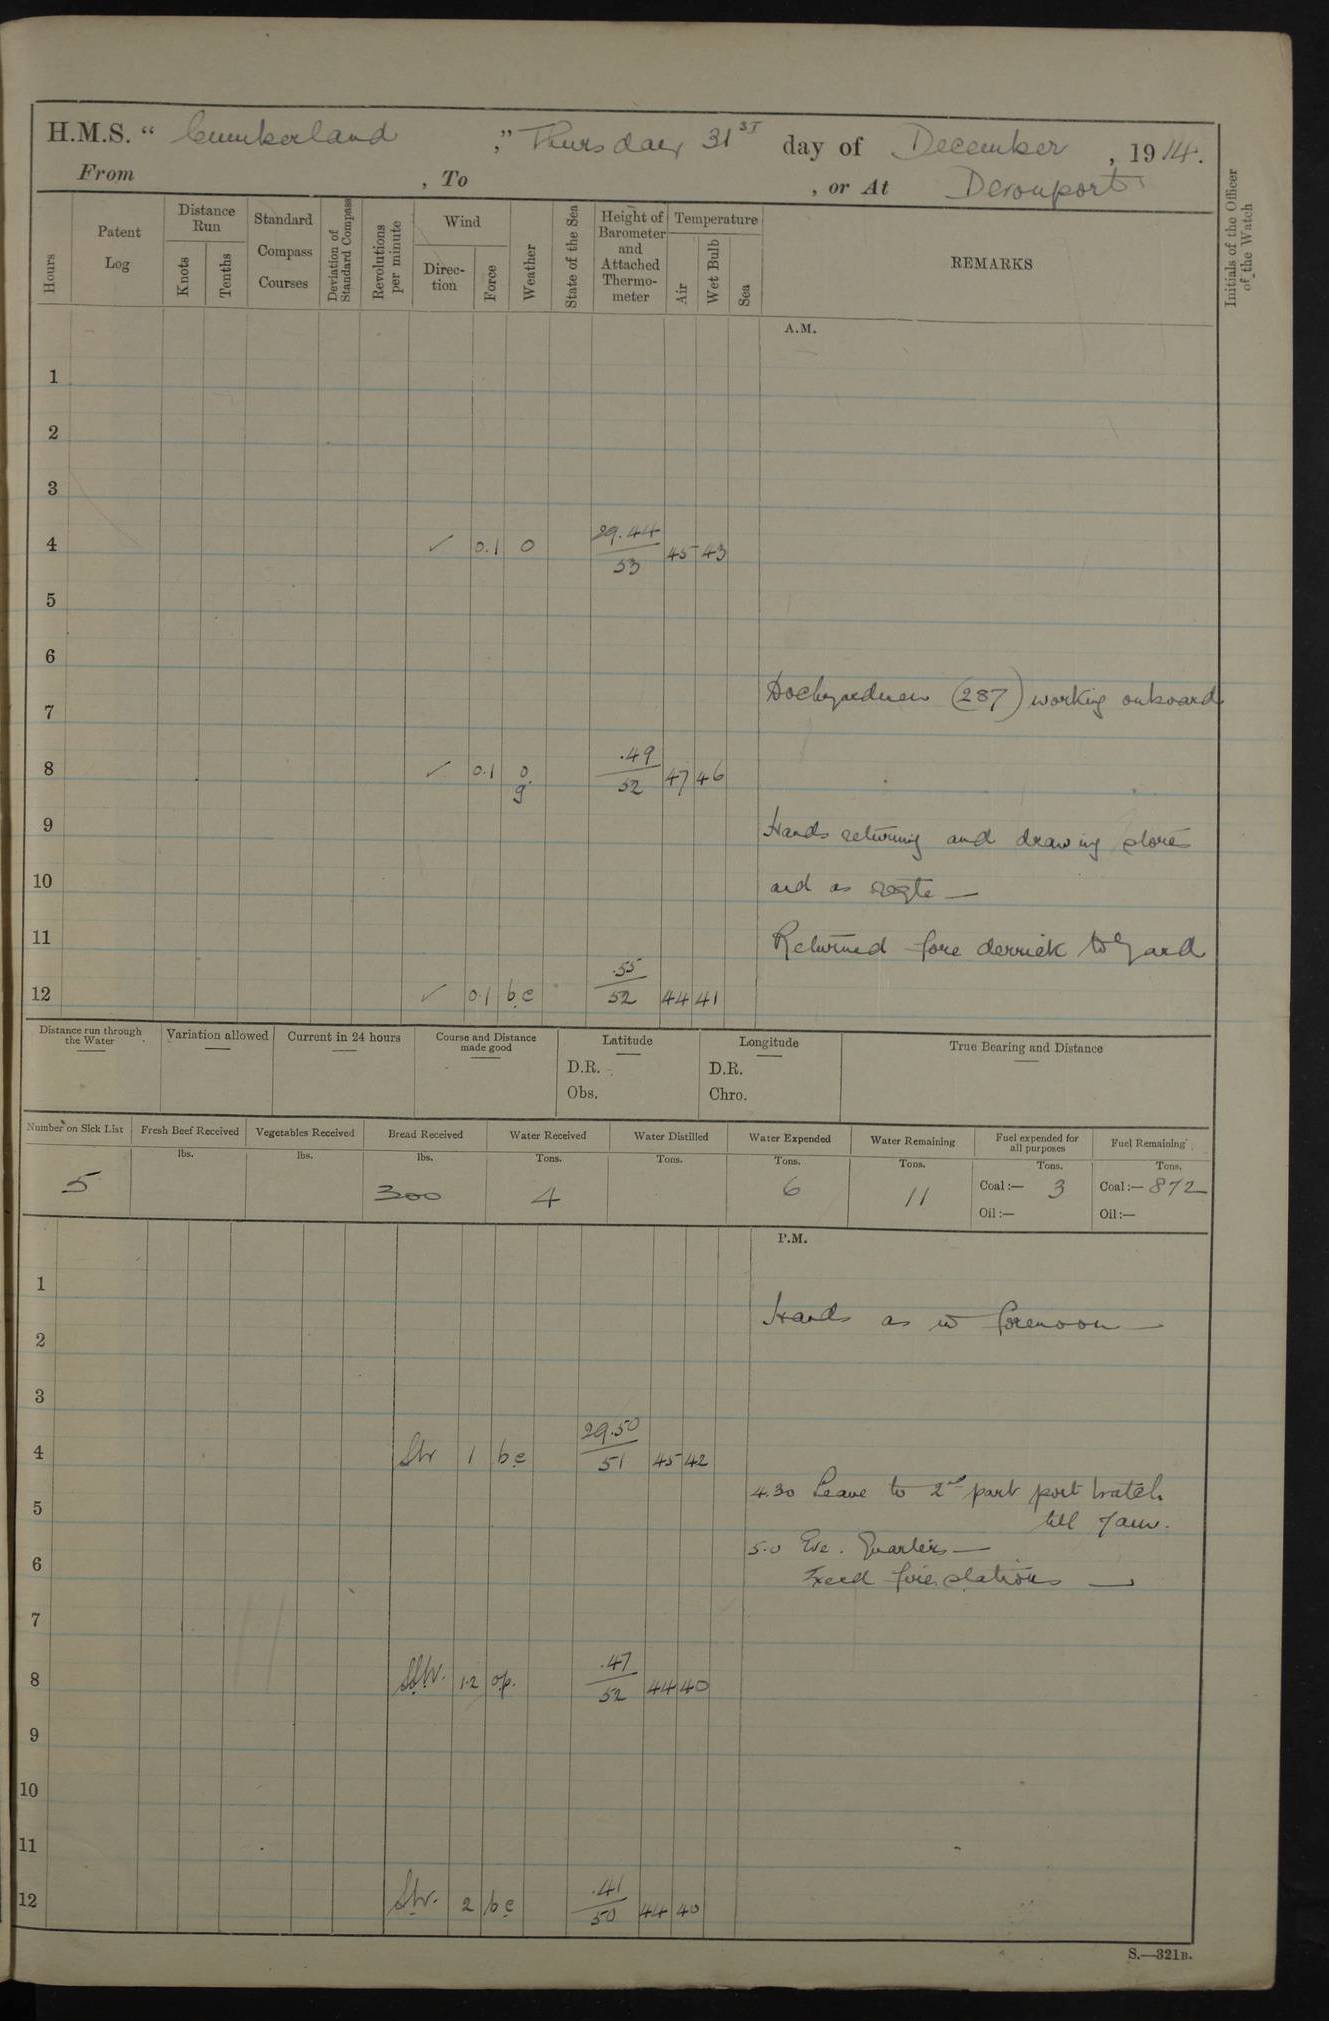 H.M.S. “ Cumberland ,” Thursday 31ST day of December , 1914.
From , To , or At Devonport
Hours
Patent Log
Distance Run
Knots
Tenths
Standard Compass Courses
Deviation of Standard Compass
Revolutions per minute
Wind
Direction
Force
Weather
State of the Sea
Height of Barometer and Attached Thermometer
Temperature
Air
Wet Bulb
Sea
REMARKS
Initials of the Officer of the Watch
A.M.
1
2
3
4 ✓ 0.1 0 29.44/53 45 43
5
6
Dockyardmen (287) working onboard
7
8 ✓ 0.1 o.g. .49/52 47 46
9 Hands returning and drawing stores
10 and as reqte —
11 Returned fore derrick to Yard
12 ✓ 0.1 b.c .55/52 44 41
Distance run through the Water
Variation allowed
Current in 24 hours
Course and Distance made good
Latitude
D.R.
Obs.
Longitude
D.R.
Chro.
True Bearing and Distance
Number on Sick List
5
Fresh Beef Received
lbs.
Vegetables Received
lbs.
Bread Received
lbs.
300
Water Received
Tons.
4
Water Distilled
Tons.
Water Expended
Tons.
6
Water Remaining
Tons.
11
Fuel expended for all purposes
Tons.
Coal:— 3
Oil:—
Fuel Remaining
Tons.
Coal:— 872
Oil:—
P.M.
1
Hands as in forenoon —
2
3
4 1 b c 29.50/51 45 42
4.30 Leave to 2nd part port watch
5 till 7am.
5.0 Eve. Quarters —
6 Exed fire stations —
7
8 1.2 op. .47/52 44 40
9
10
11
12 2 b c .41/50 44 40
S.—321B.